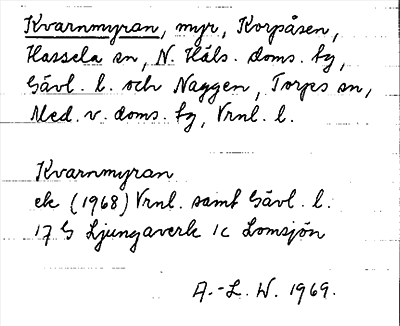 Kvarnmyran, myr, Korpåsen,
Hassela sn, N. Häls. doms. fg,
Gävl. l. och Naggen, Torps sn,
Med. v. doms. fg, Vrnl. l.
Kvarnmyran
ek (1968) Vrnl. samt Gävl. l.
17 G Ljungaverk 1c Lomsjön
A.-L. W. 1969.